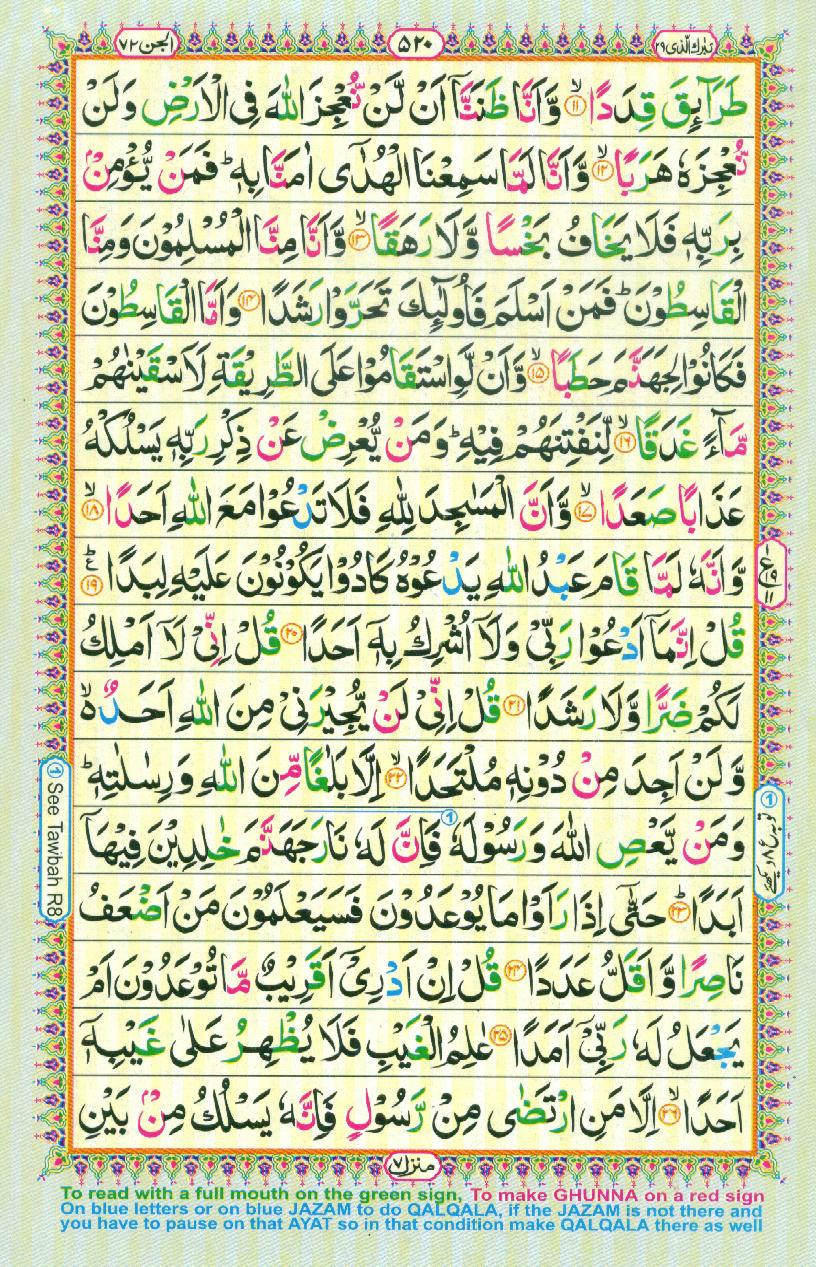 تبٰرك الذی ۲۹
۵۲۰
الجن ۷۲
طَرَآئِقَ قِدَدًا ۙ﴿۱۱﴾ وَّاَنَّا ظَنَنَّاۤ اَنْ لَّنْ نُّعْجِزَ اللّٰهَ فِی الْاَرْضِ وَلَنْ
نُّعْجِزَهٗ هَرَبًا ۙ﴿۱۲﴾ وَّاَنَّا لَمَّا سَمِعْنَا الْهُدٰۤی اٰمَنَّا بِهٖ ؕ فَمَنْ یُّؤْمِنْۢ
بِرَبِّهٖ فَلَا یَخَافُ بَخْسًا وَّلَا رَهَقًا ۙ﴿۱۳﴾ وَّاَنَّا مِنَّا الْمُسْلِمُوْنَ وَمِنَّا
الْقَاسِطُوْنَ ؕ فَمَنْ اَسْلَمَ فَاُولٰٓئِكَ تَحَرَّوْا رَشَدًا ﴿۱۴﴾ وَاَمَّا الْقَاسِطُوْنَ
فَكَانُوْا لِجَهَنَّمَ حَطَبًا ۙ﴿۱۵﴾ وَّاَنْ لَّوِ اسْتَقَامُوْا عَلَی الطَّرِیْقَةِ لَاَسْقَیْنٰهُمْ
مَّآءً غَدَقًا ۙ﴿۱۶﴾ لِّنَفْتِنَهُمْ فِیْهِ ؕ وَمَنْ یُّعْرِضْ عَنْ ذِكْرِ رَبِّهٖ یَسْلُكْهُ
عَذَابًا صَعَدًا ۙ﴿۱۷﴾ وَّاَنَّ الْمَسٰجِدَ لِلّٰهِ فَلَا تَدْعُوْا مَعَ اللّٰهِ اَحَدًا ۙ﴿۱۸﴾
وَّاَنَّهٗ لَمَّا قَامَ عَبْدُ اللّٰهِ یَدْعُوْهُ كَادُوْا یَكُوْنُوْنَ عَلَیْهِ لِبَدًا ؕ﴿۱۹﴾
قُلْ اِنَّمَاۤ اَدْعُوْا رَبِّیْ وَلَاۤ اُشْرِكُ بِهٖۤ اَحَدًا ﴿۲۰﴾ قُلْ اِنِّیْ لَاۤ اَمْلِكُ
لَكُمْ ضَرًّا وَّلَا رَشَدًا ﴿۲۱﴾ قُلْ اِنِّیْ لَنْ یُّجِیْرَنِیْ مِنَ اللّٰهِ اَحَدٌ ۙ۬
وَّلَنْ اَجِدَ مِنْ دُوْنِهٖ مُلْتَحَدًا ۙ﴿۲۲﴾ اِلَّا بَلٰغًا مِّنَ اللّٰهِ وَرِسٰلٰتِهٖ ؕ
وَمَنْ یَّعْصِ اللّٰهَ وَرَسُوْلَهٗ ① فَاِنَّ لَهٗ نَارَ جَهَنَّمَ خٰلِدِیْنَ فِیْهَاۤ
اَبَدًا ؕ﴿۲۳﴾ حَتّٰۤی اِذَا رَاَوْا مَا یُوْعَدُوْنَ فَسَیَعْلَمُوْنَ مَنْ اَضْعَفُ
نَاصِرًا وَّاَقَلُّ عَدَدًا ﴿۲۴﴾ قُلْ اِنْ اَدْرِیْۤ اَقَرِیْبٌ مَّا تُوْعَدُوْنَ اَمْ
یَجْعَلُ لَهٗ رَبِّیْۤ اَمَدًا ﴿۲۵﴾ عٰلِمُ الْغَیْبِ فَلَا یُظْهِرُ عَلٰی غَیْبِهٖۤ
اَحَدًا ۙ﴿۲۶﴾ اِلَّا مَنِ ارْتَضٰی مِنْ رَّسُوْلٍ فَاِنَّهٗ یَسْلُكُ مِنْۢ بَیْنِ
ع ۱۹ ۱۱
① See Tawbah R8
① توبہ ع ۸ دیکھئے
منزل ۷
To read with a full mouth on the green sign, To make GHUNNA on a red sign
On blue letters or on blue JAZAM to do QALQALA, if the JAZAM is not there and
you have to pause on that AYAT so in that condition make QALQALA there as well